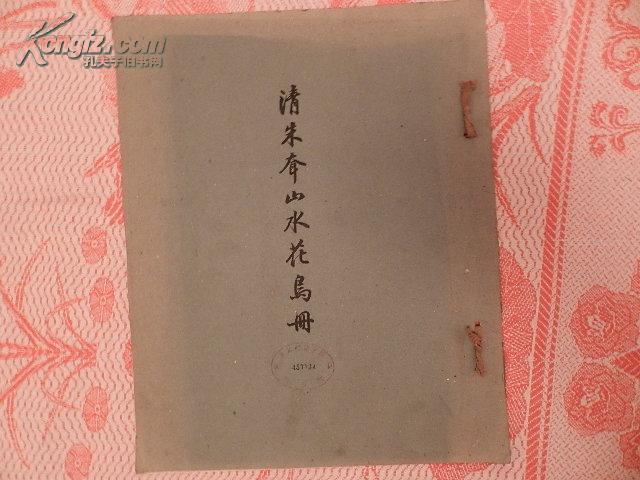 Kongfz.com
孔夫子旧书网
清朱耷山水花鳥冊